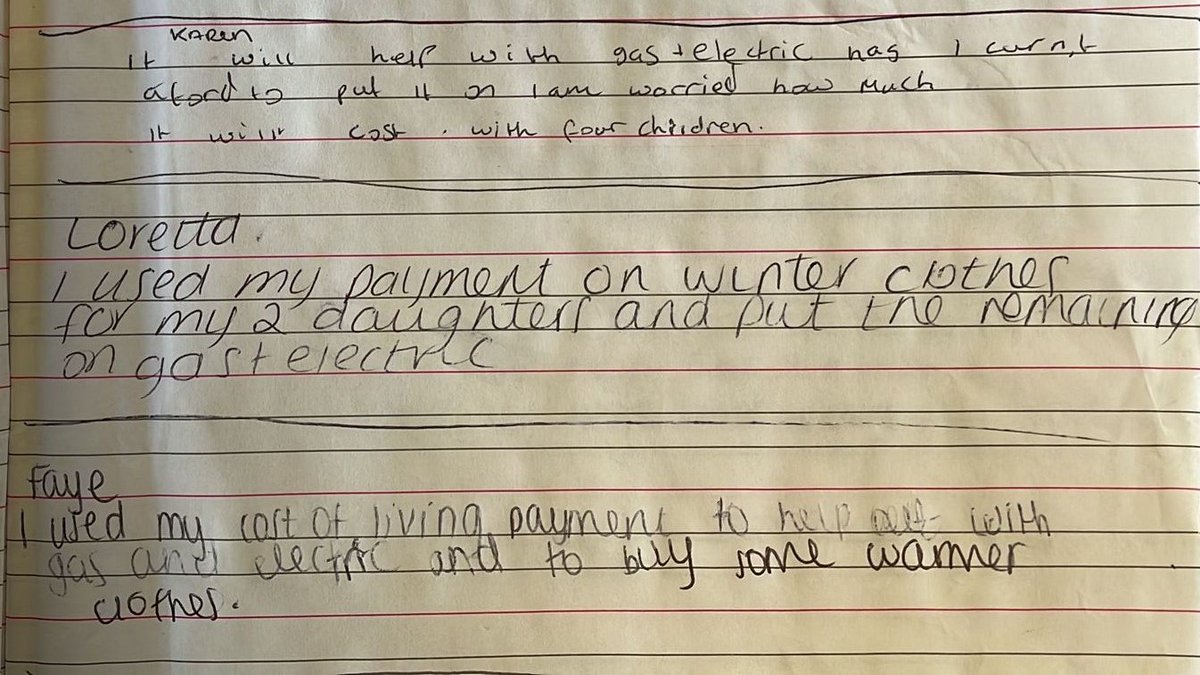 KAREN
It will help with gas + electric has I curn,t
aford to put it on I am worried how much
It will cost . with four children.
Loretta.
I used my payment on winter clothes
for my 2 daughters and put the remaining
on gas + electric
Faye
I used my cost of living payment to help out with
gas and electric and to buy some warmer
clothes.